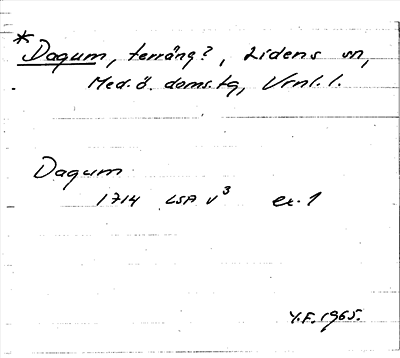 *
Dagum, terräng?, Lidens sn,
Med. ö. doms. tg, Vrnl. l.
Dagum
1714 LSA V³ ex. 1
Y.F. 1965.